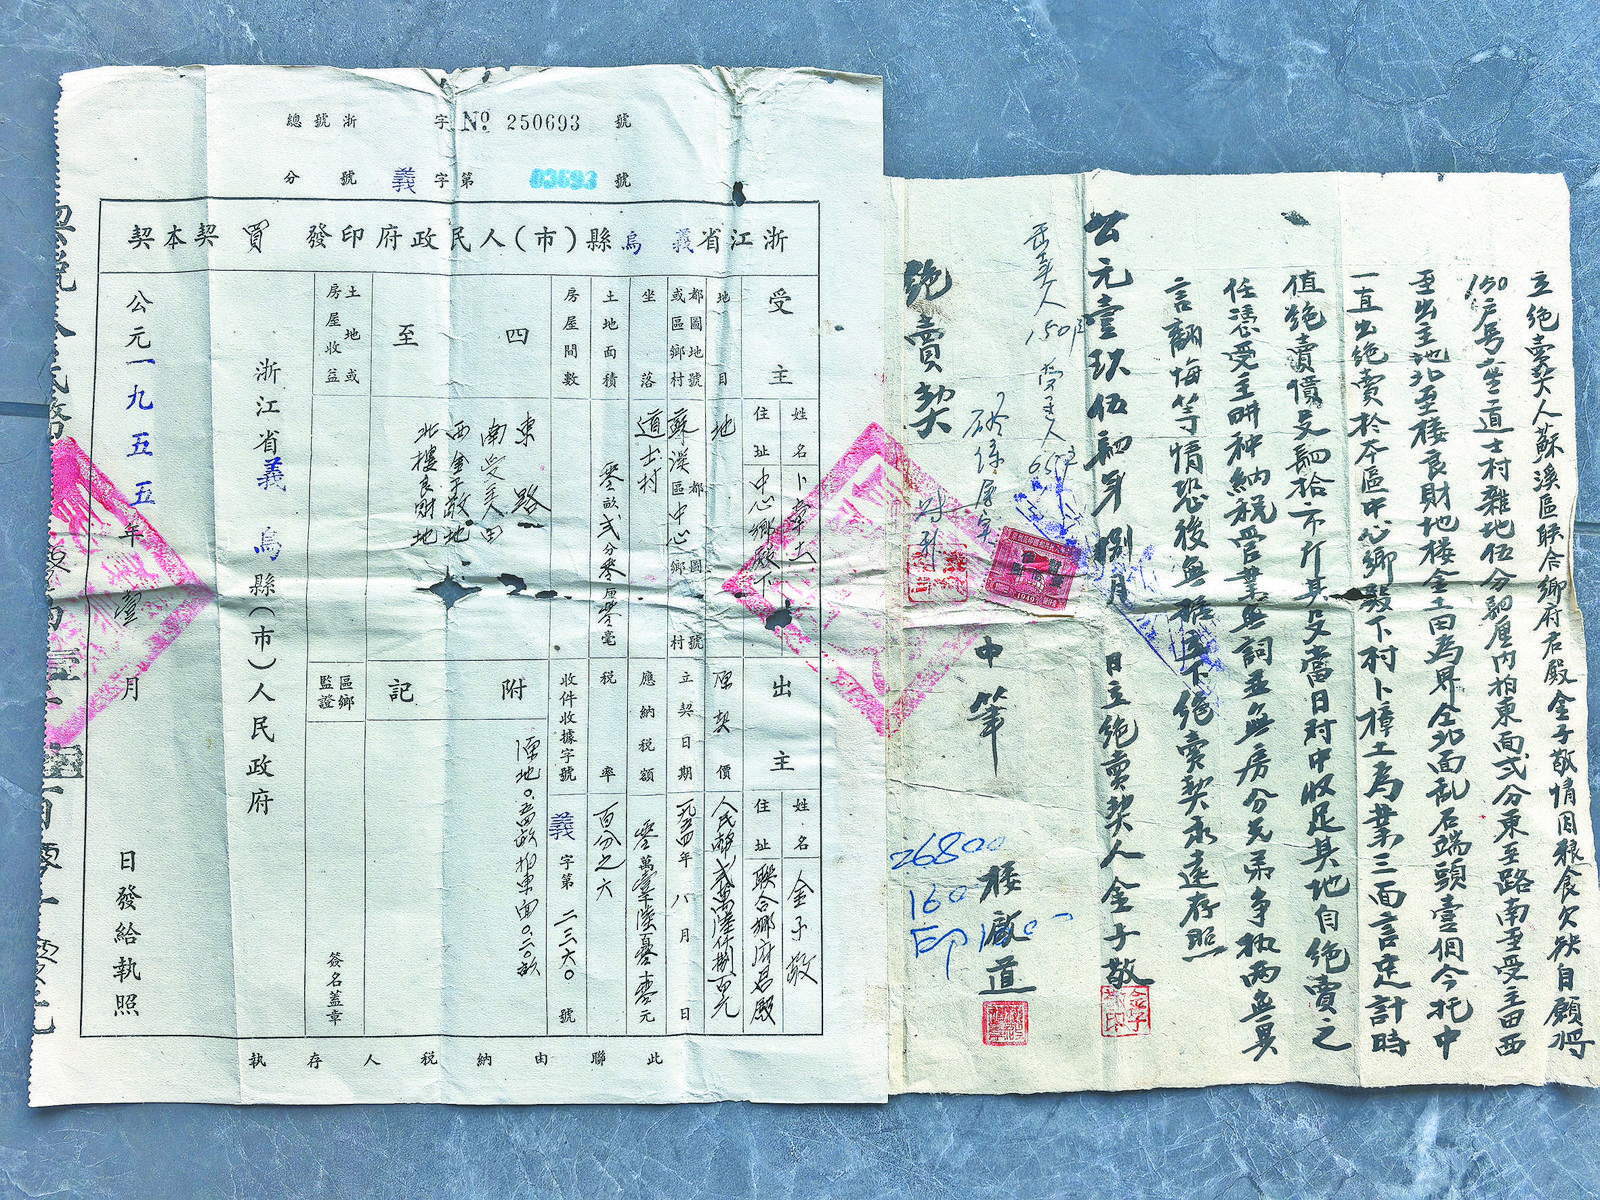 總號浙 字 № 250693 號
分號 義 字第 03693 號
浙江省義烏縣(市)人民政府印發買契本契
受主
姓名
卜樟土
住址
中心鄉殿下
出主
姓名
金子敬
住址
聯合鄉府君殿
地目
地
原契價
人民幣弍萬陸仟捌百元
都圖地號
或區鄉村
蘇溪區中心鄉
都圖號村
立契日期
一九五四年八月 日
坐落
道士村
應納稅額
零萬壹仟陸百零十零元
土地面積
零畝弍分零厘零毫
稅率
百分之六
房屋間數
收件收據字號
義字第二三六〇號
四至
東路
南受主田
西金子敬地
北樓良財地
附記
原地0.五四畝拍東面0.二〇畝
土地或
房屋收益
區鄉
監證
簽名蓋章
浙江省義烏縣(市)人民政府
公元一九五五年壹月 日發給執照
此聯由納稅人存執
立絕賣契人蘇溪區联合鄉府君殿金子敬情因粮食欠缺自願將
150户号土道士村雜地伍分四厘内拍東面弍分東至路南至受主田西
至出主地北至楼良財地楼金土田為界仝北面乱石端頭壹個今托中
一直出絕賣於本區中心鄉殿下村卜樟土為業三面言定計時
值絕賣價谷四拾一市斤其谷當日对中收足其地自絕賣之後
任憑受主畊种納稅管業無詞並無房分兄弟争执兩無異
言翻悔等情恐後無據立下絕賣契永遠存照
公元壹玖伍四年捌月 日立絕賣契人金子敬
中筆 楼 道
絕賣契
26800
160